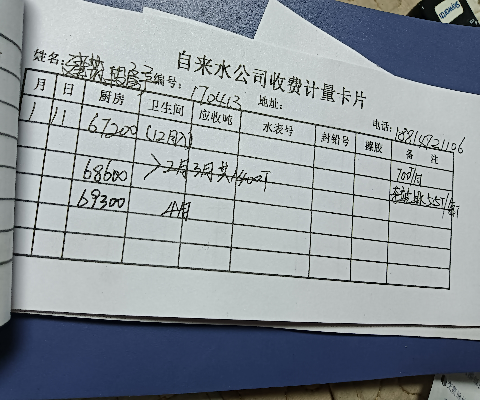 自来水公司收费计量卡片
姓名: 编号: 170413 地址: 电话: 18814721106
月 日 厨房 卫生间 应收吨 水表号 封铅号 橡胶 备 注
1 11 67200 (12月入) 700/月
68600 >2月3月共1400T
69300 4月